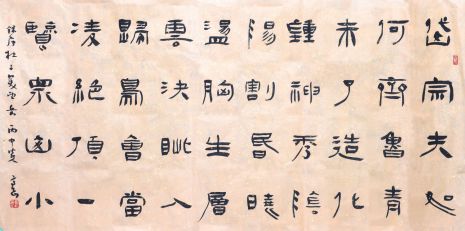 岱宗夫如
何齊魯青
未了造化
鍾神秀陰
陽割昏曉
盪胸生層
雲決眦入
歸鳥會當
凌絕頂一
覽眾山小
錄唐杜子美望岳 丙申夏